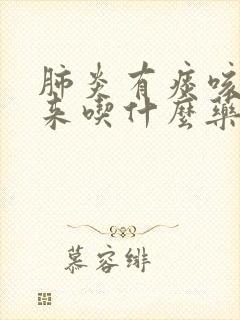 肺炎有痰咳
来喫什麼藥
慕容绯